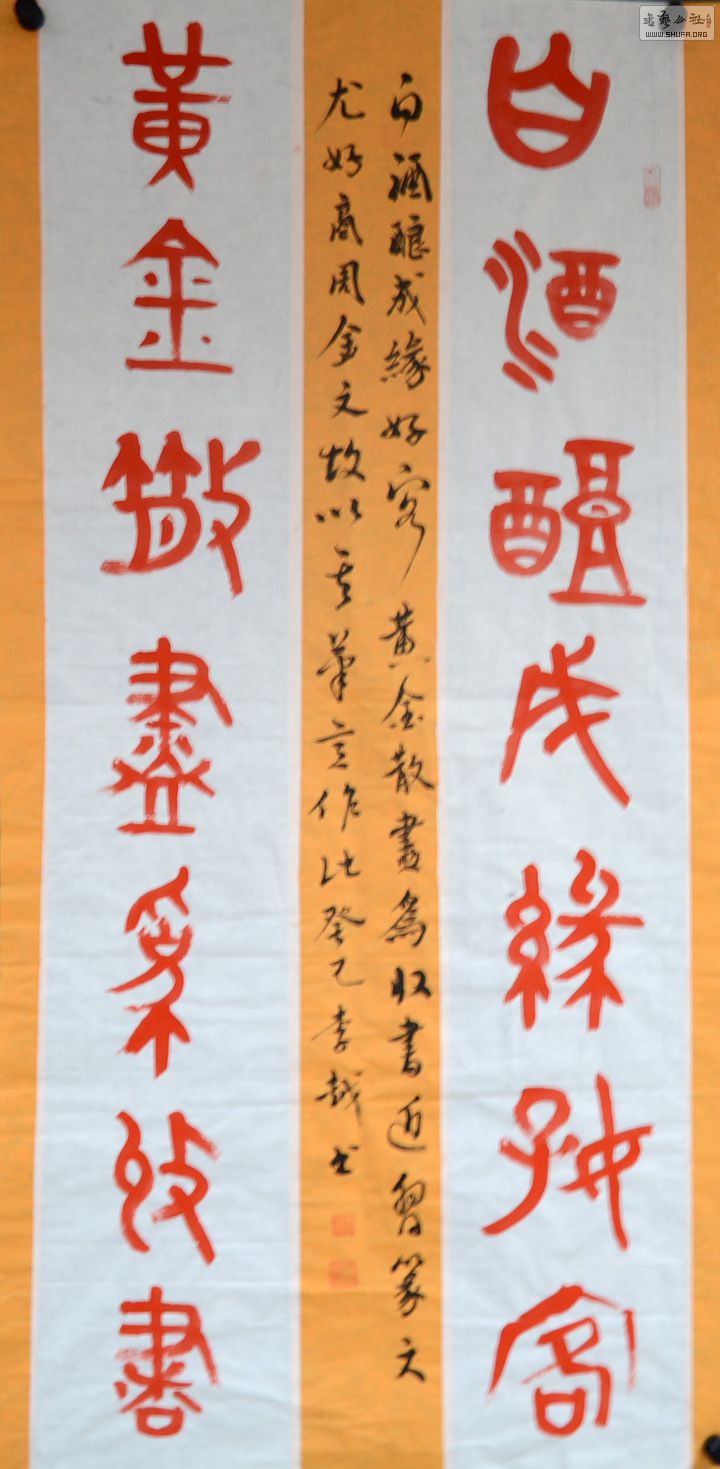 白酒釀成緣好客
白酒釀成緣好客黄金散盡爲收書近習篆文
尤好商周金文故以其筆意作此癸巳李越書
黃金散盡爲收書
書藝公社
WWW.SHUFA.ORG